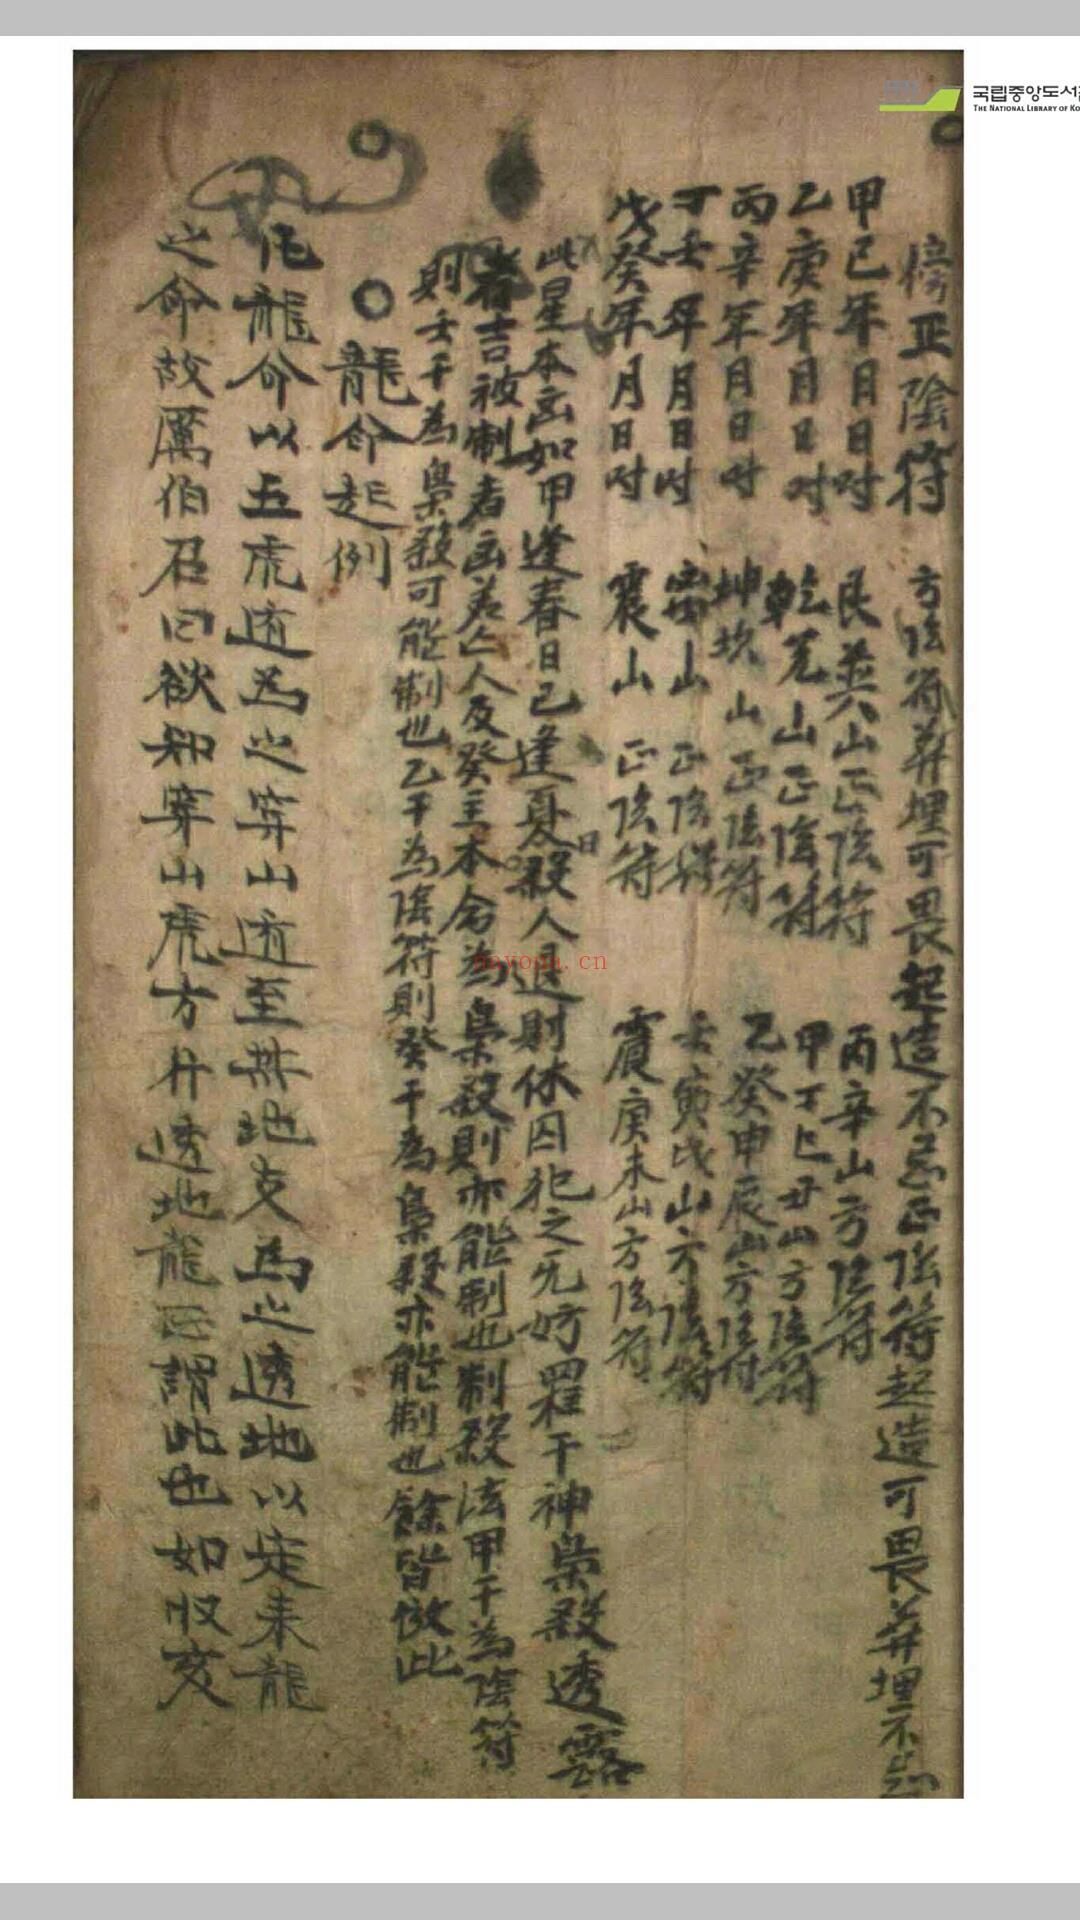 국립중앙도서관
THE NATIONAL LIBRARY OF KO
傍正陰符 方陰符葬埋可畏起造不忌正陰符起造可畏葬埋不忌
甲己年月日时 艮巽山正陰符 丙辛山方陰符
乙庚年月日时 乾兌山正陰符 甲丁巳丑山方陰符
丙辛年月日时 坤坎山正陰符 乙癸申辰山方陰符
丁壬年月日时 离山正陰符 壬寅戌山方陰符
戊癸年月日时 震山正陰符 震庚未山方陰符
此星本凶如甲逢春日己逢夏日殺人退財休囚犯之无妨羅干神梟殺透露
者吉被制者凶若亡人及癸主本命為梟殺則亦能制也制殺法甲干為陰符
則壬干為梟殺可能制也乙干為陰符則癸干為梟殺亦能制也餘皆倣此
龍命起例
凡龍命以五虎遁為之穿山遁至其地支為之透地以定来龍
之命故厲伯召曰欲知穿山虎方廾透地龍正謂此也如收亥
nayona.cn